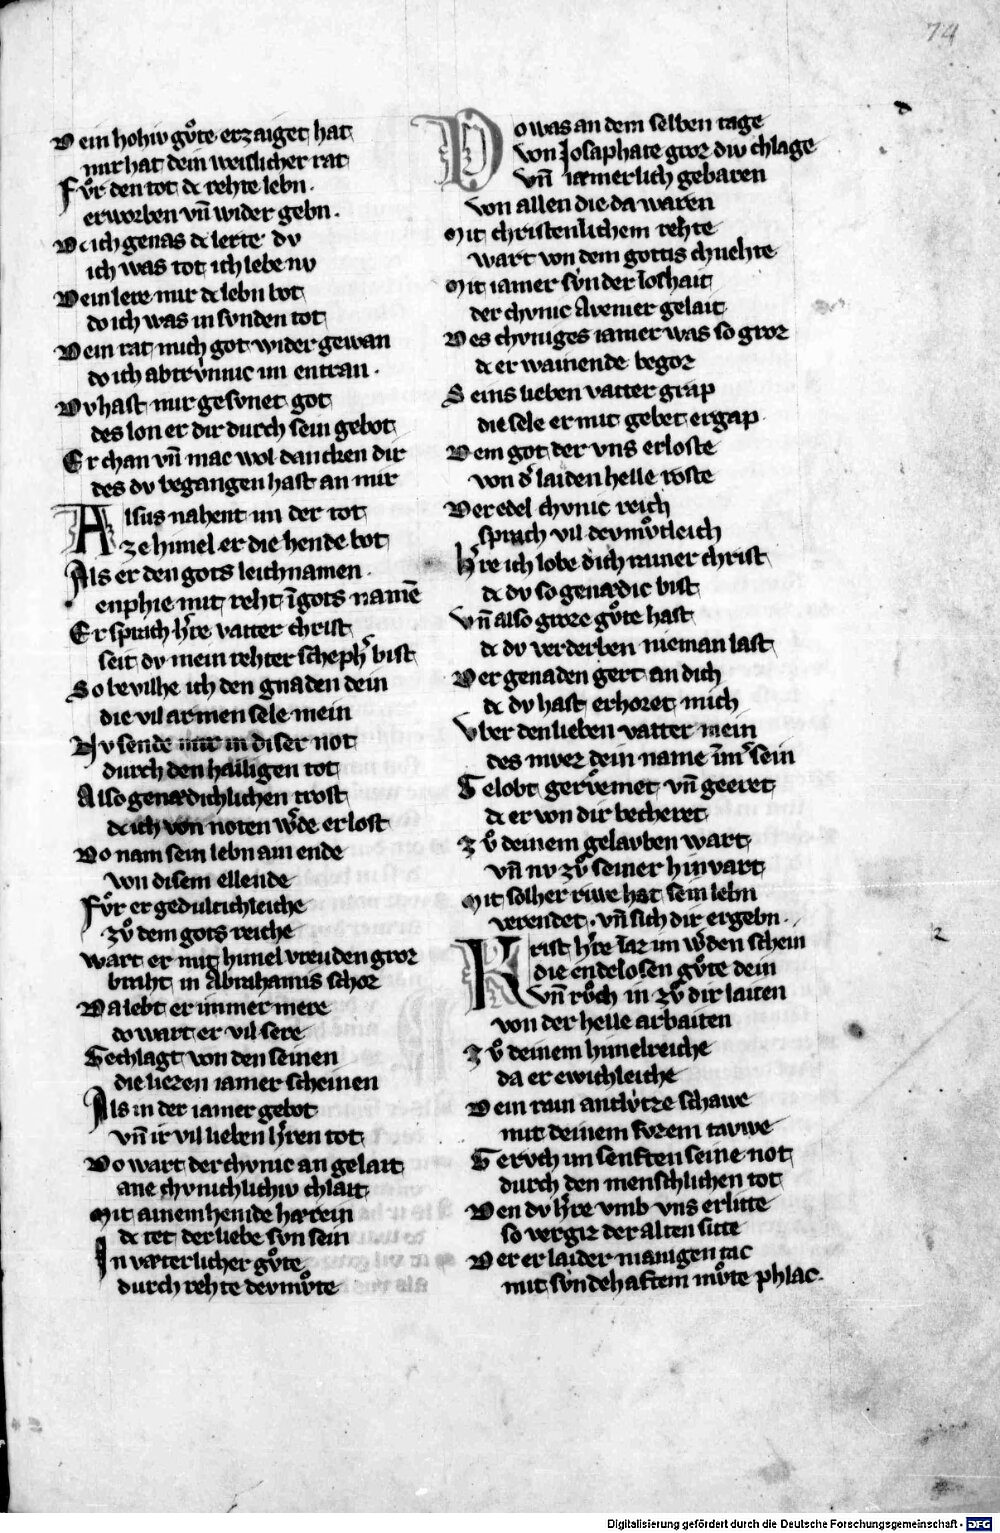 74
Dein hohiv gůte erzaiget hat
mir hat dein weislicher rat
Fůr den tot dc rehte lebn.
erworben vn̄ wider gebn.
Dc ich genas dc lerte dv
ich was tot ich lebe nv
Dein lere mir dc lebn bot
do ich was in svnden tot
Dein rat mich got wider gewan
do ich abtrv̇nnic im entran.
Dv hast mir gesvnet got
des lon er dir durch sein gebot
Er chan vn̄ mac wol dancken dir
des dv begangen hast an mir
Alsus nahent im der tot
ze himel er die hende bot
Als er den gots leichnamen.
enphie mit reht ī gots namē
Er sprach h̾re vatter christ
seit dv mein rehter scheph̾ bist
So bevilhe ich den gnaden dein
die vil armen sele mein
Nv sende mir in diser not
durch den hailigen tot
Also genædichlichen trost
dc ich von noten w̾de erlost
Do nam sein lebn am ende
von disem ellende
Fůr er gedultichleiche
zů dem gots reiche
Wart er mit himel vreuden groz
braht in Abrahamis schoz
Da lebt er immer mere
do wart er vil sere
Gechlagt von den seinen
die liezen iamer scheinen
Als in der iamer gebot
vn̄ ir vil lieben h̾ren tot
Do wart der chvnic an gelait
ane chvnichlichiv chlait
Mit ainem hemde hærein
dc tet der liebe svn sein
In væterlicher gůte
durch rehte devmůte
Do was an dem selben tage
von Josaphate groz div chlage
vn̄ iæmerlich gebaren
von allen die da waren
Mit christenlichem rehte
wart von dem gottis chnehte
Mit iamer sv̇nder loshait
der chvnic Avenier gelait
Des chvniges iamer was so groz
dc er wainende begoz
Seins lieben vatter grap
die sele er mit gebet ergap.
Dem got der vns erloste
von d̾ laiden helle roste
Der edel chvnic reich
sprach vil devmůtleich
H̾re ich lobe dich rainer christ
dc dv so genædic bist
Vn̄ also groze gůte hast
dc dv verderben nieman last
Der genaden gert an dich
dc dv hast erhoret mich
Vber den lieben vatter mein
des mvez dein name īm̾ sein
Gelobt gerv̊met vn̄ geeret
dc er von dir becheret
Zů deinem gelavben wart
vn̄ nv zů seiner hinvart
Mit solher riwe hat sein lebn
verendet. vn̄ sich dir ergebn.
Krist h̾re laz im w̾den schein
die endelosen gůte dein
Vn̄ růch in zů dir laiten
von der helle arbaiten
Zů deinem himelreiche
da er ewichleiche
Dein rain antlv̇tze schawe
mit deinem svzem tavwe
Gervch im senften seine not
durch den menschlichen tot
Den dv h̾re vmb vns erlitte
so vergiz der alten sitte
Der er laider manigen tac
mit sv̇ndehaftem můte phlac.
Digitalisierung gefördert durch die Deutsche Forschungsgemeinschaft - DFG